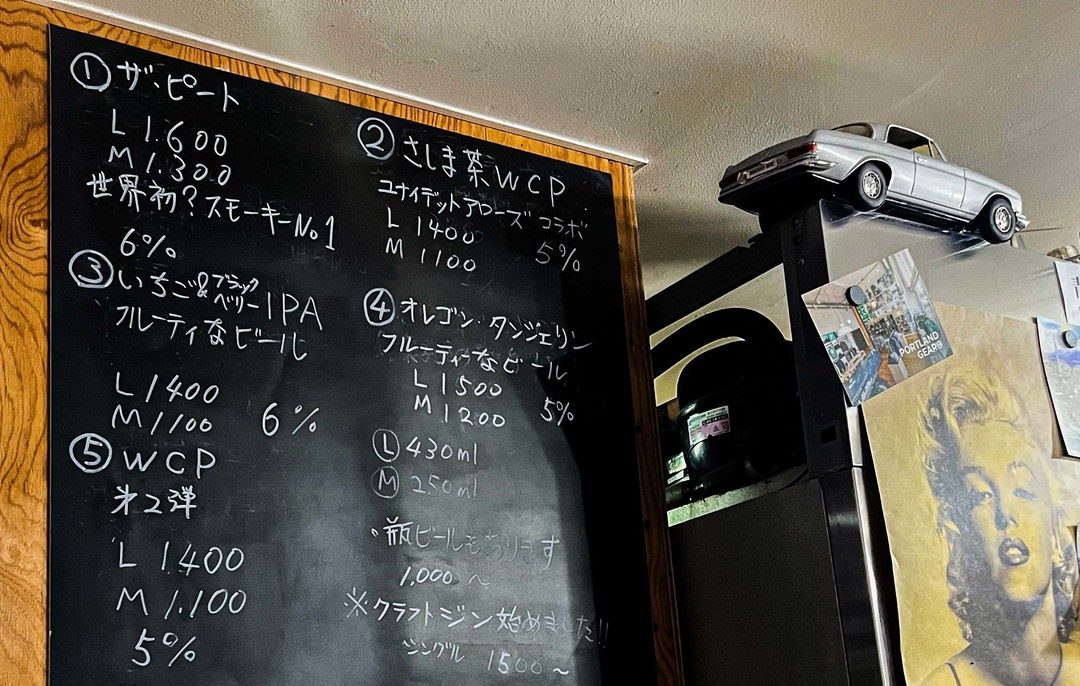 ① ザ・ピート
L 1.600
M 1.300
世界初?スモーキーNo1
6%
② さしま茶WCP
ユナイデットアローズ コラボ
L 1400
M 1100 5%
③ いちご&ブラックベリーIPA
フルーティなビール
L 1400
M 1100 6%
④ オレゴン・タンジェリン
フルーティーなビール
L 1500
M 1200 5%
⑤ WCP
㐧2弾
L 1.400
M 1.100
5%
Ⓛ 430ml
Ⓜ 250ml
・瓶ビールもあります
1,000~
※クラフトジン始めました!!
シングル 1500~
PORTLAND
GEAR®